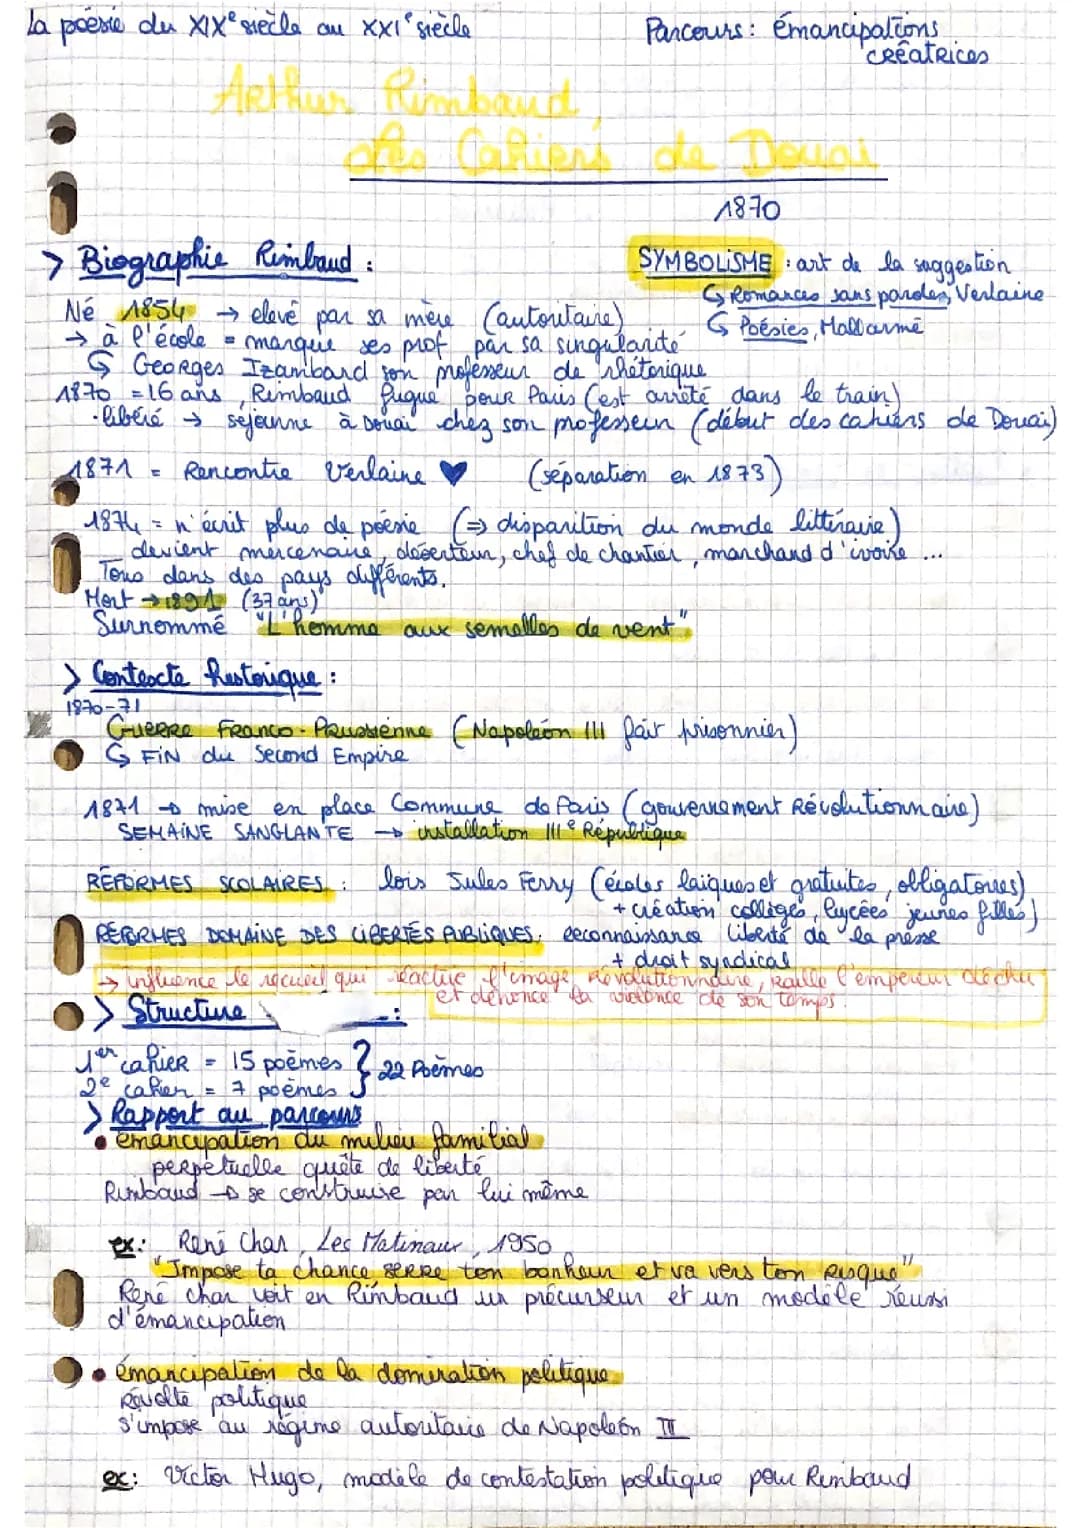 La poésie du XIXe siècle au XXIe siècle
Parcours : émancipations
créatrices
Arthur Rimbaud,
Les Cahiers de Douai
1870
> Biographie Rimbaud :
SYMBOLISME : art de la suggestion
↳ Romances sans paroles, Verlaine
↳ Poésies, Mallarmé
Né 1854 → élevé par sa mère (autoritaire)
→ à l'école = marque ses prof par sa singularité
↳ Georges Izambard son professeur de rhétorique
1870 = 16 ans, Rimbaud fugue pour Paris (est arrêté dans le train)
· libéré → séjourne à Douai chez son professeur (début des cahiers de Douai)
1871 = Rencontre Verlaine ♥ (séparation en 1873)
1874 = n'écrit plus de poésie (⇒ disparition du monde littéraire)
devient mercenaire, déserteur, chef de chantier, marchand d'ivoire ...
Tous dans des pays différents.
Mort → 1891 (37 ans)
Surnommé "L'homme aux semelles de vent"
> Contexte historique :
1870-71
Guerre Franco-Prussienne (Napoléon III fait prisonnier)
↳ FIN du Second Empire
1871 → mise en place Commune de Paris (gouvernement Révolutionnaire)
SEMAINE SANGLANTE → installation IIIe République
RÉFORMES SCOLAIRES : lois Jules Ferry (écoles laïques et gratuites, obligatoires)
+ création collèges, lycées jeunes filles)
RÉFORMES DOMAINE DES LIBERTÉS PUBLIQUES : reconnaissance liberté de la presse
+ droit syndical
→ influence le recueil qui réactive l'image révolutionnaire, raille l'empereur déchu
et dénonce la violence de son temps.
> Structure :
1er cahier = 15 poèmes } 22 Poèmes
2e cahier = 7 poèmes
> Rapport au parcours
• émancipation du milieu familial
perpétuelle quête de liberté
Rimbaud → se construire par lui même
ex : René Char, Les Matinaux, 1950
"Impose ta chance, serre ton bonheur et va vers ton risque"
René char voit en Rimbaud un précurseur et un modèle réussi
d'émancipation
• émancipation de la domination politique
Révolte politique
s'impose au régime autoritaire de Napoléon III
ex : Victor Hugo, modèle de contestation politique pour Rimbaud